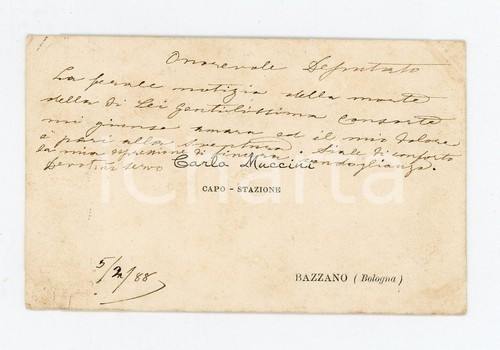 Onorevole Deputato
La ferale notizia della morte
della di Lei Gentilissima consorte
mi giunse amara ed il mio dolore
è pari alla sventura. Siale di conforto
la mia espressione di sincera condoglianza.
Devotmo servo Carlo Muccini
CAPO - STAZIONE
5/2/88
BAZZANO (Bologna)